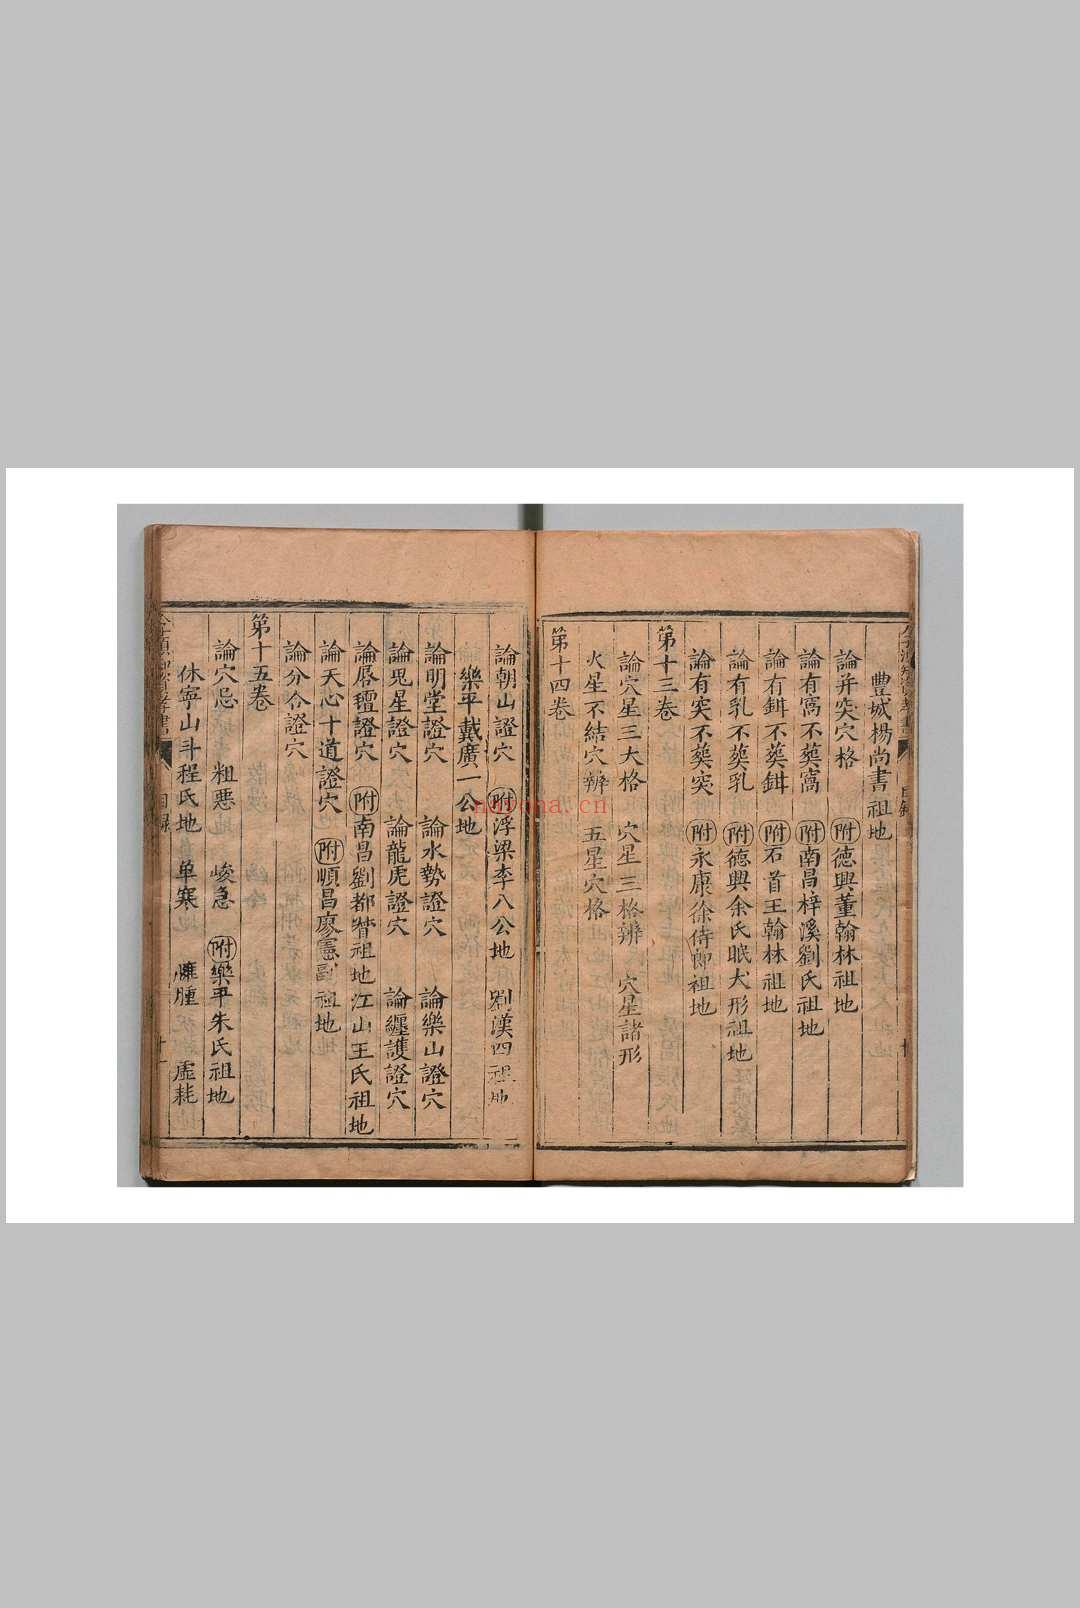 豐城楊尚書祖地
論并突穴格 附德興董翰林祖地
論有窩不葬窩 附南昌梓溪劉氏祖地
論有鉗不葬鉗 附石首王翰林祖地
論有乳不葬乳 附德興余氏眠犬形祖地
論有突不葬突 附永康徐侍郎祖地
第十三卷
論穴星三大格 穴星三格辨 穴星諸形
火星不結穴辨 五星穴格
第十四卷
論朝山證穴 附浮梁李八公地 劉漢四祖地
樂平戴廣一公地
論明堂證穴 論水勢證穴 論樂山證穴
論鬼星證穴 論龍虎證穴 論纏護證穴
論唇氊證穴 附南昌劉都督祖地江山王氏祖地
論天心十道證穴 附順昌廖憲副祖地
論分合證穴
第十五卷
論穴忌 粗惡 峻急 附樂平朱氏祖地
休寧山斗程氏地 单寒 臃腫 虛耗
目録
十一
nayona.cn